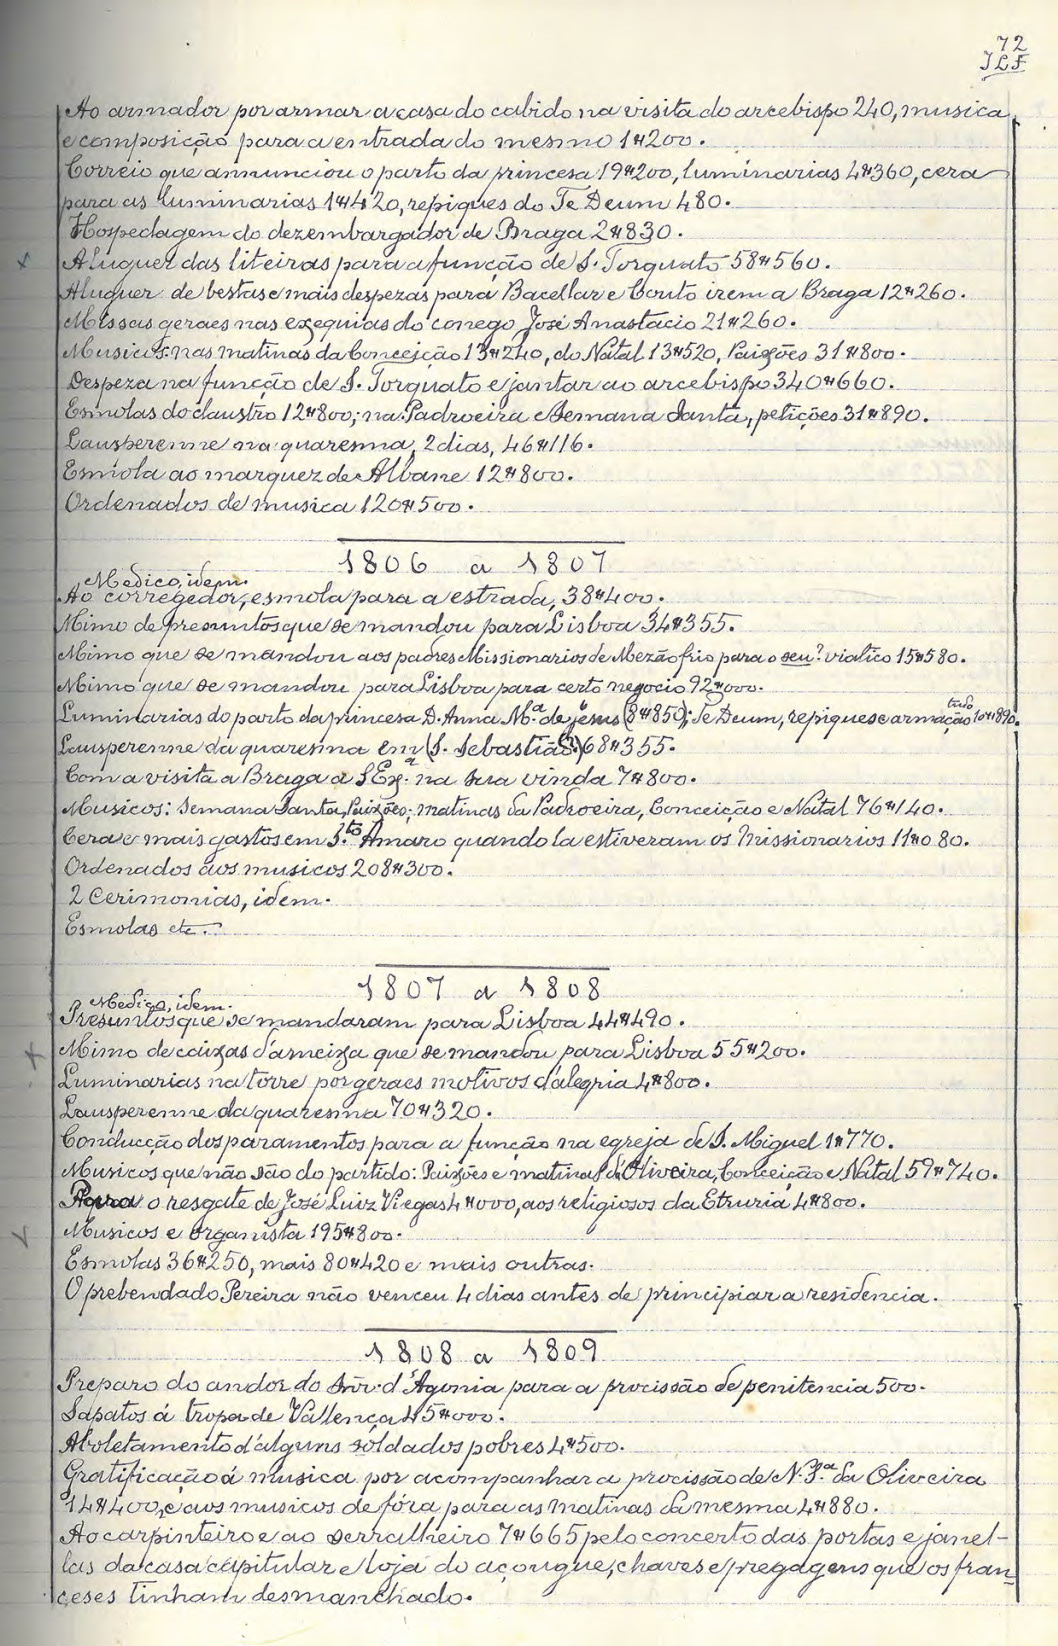 72
JLF
Ao armador por armar a casa do cabido na visita do arcebispo 240, musica
e composição para a entrada do mesmo 1#200.
Correio que annunciou o parto da princesa 19#200, luminarias 4#360, cera
para as luminarias 1#420, repiques do Te Deum 480.
Hospedagem do dezembargador de Braga 2#830.
Aluguer das liteiras para a função de S. Torquato 58#560.
Aluguer de bestas e mais despezas para Bacellar e Couto irem a Braga 12#260.
Missas geraes nas exequias do conego José Anastacio 21#260.
Musicos nas matinas da Conceição 13#240, do Natal 13#520, Paixões 31#800.
Despeza na função de S. Torquato e jantar ao arcebispo 340#660.
Esmolas do claustro 12#800; na Padroeira e Semana Santa, petições 31#890.
Lausperenne na quaresma, 2 dias, 46#116.
Esmola ao marquez de Albane 12#800.
Ordenados de musica 120#500.
1806 a 1807
Medico, idem.
Ao corregedor, esmola para a estrada, 38#400.
Mimo de presuntos que se mandou para Lisboa 34#355.
Mimo que se mandou aos padres Missionarios de Mezãofrio para o seu? viatico 15#580.
Mimo que se mandou para Lisboa para certo negocio 92#000.
Luminarias do parto da princesa D. Anna M.ª de Jesus (8#850); Te Deum, repiques e armação tudo 10#890.
Lausperenne da quaresma em (S. Sebastião?) 68#355.
Com a visita a Braga a S Ex.ª na sua vinda 7#800.
Musicos: Semana Santa, Paixões; matinas da Padroeira, Conceição e Natal 76#140.
Cera e mais gastos em S.to Amaro quando la estiveram os Missionarios 11#080.
Ordenados aos musicos 208#300.
2 Cerimonias, idem.
Esmolas etc.
1807 a 1808
Medico, idem.
Presuntos que se mandaram para Lisboa 44#490.
Mimo de caixas d'ameixa que se mandou para Lisboa 55#200.
Luminarias na torre por geraes motivos d'alegria 4#800.
Lausperenne da quaresma 70#320.
Conducção dos paramentos para a função na egreja de S. Miguel 1#770.
Musicos que não são do partido: Paixões e matinas da Oliveira, Conceição e Natal 59#740.
Para o resgate de José Luiz Viegas 4#000, aos religiosos da Etruria 4#800.
Musicos e organista 195#800.
Esmolas 36#250, mais 80#420 e mais outras.
O prebendado Pereira não venceu 4 dias antes de principiar a residencia.
1808 a 1809
Preparo do andor do Snr. d'Agonia para a procissão de penitencia 500.
Sapatos á tropa de Vallença 45#000.
Aboletamento d'alguns soldados pobres 4#500.
Gratificação á musica por acompanhar a procissão de N. S.ª da Oliveira
14#400, e aos musicos de fóra para as matinas da mesma 4#880.
Ao carpinteiro e ao serralheiro 7#665 pelo concerto das portas e janel-
las da casa capitular e loja do açougue, chaves e pregagens que os fran-
ceses tinham desmanchado.